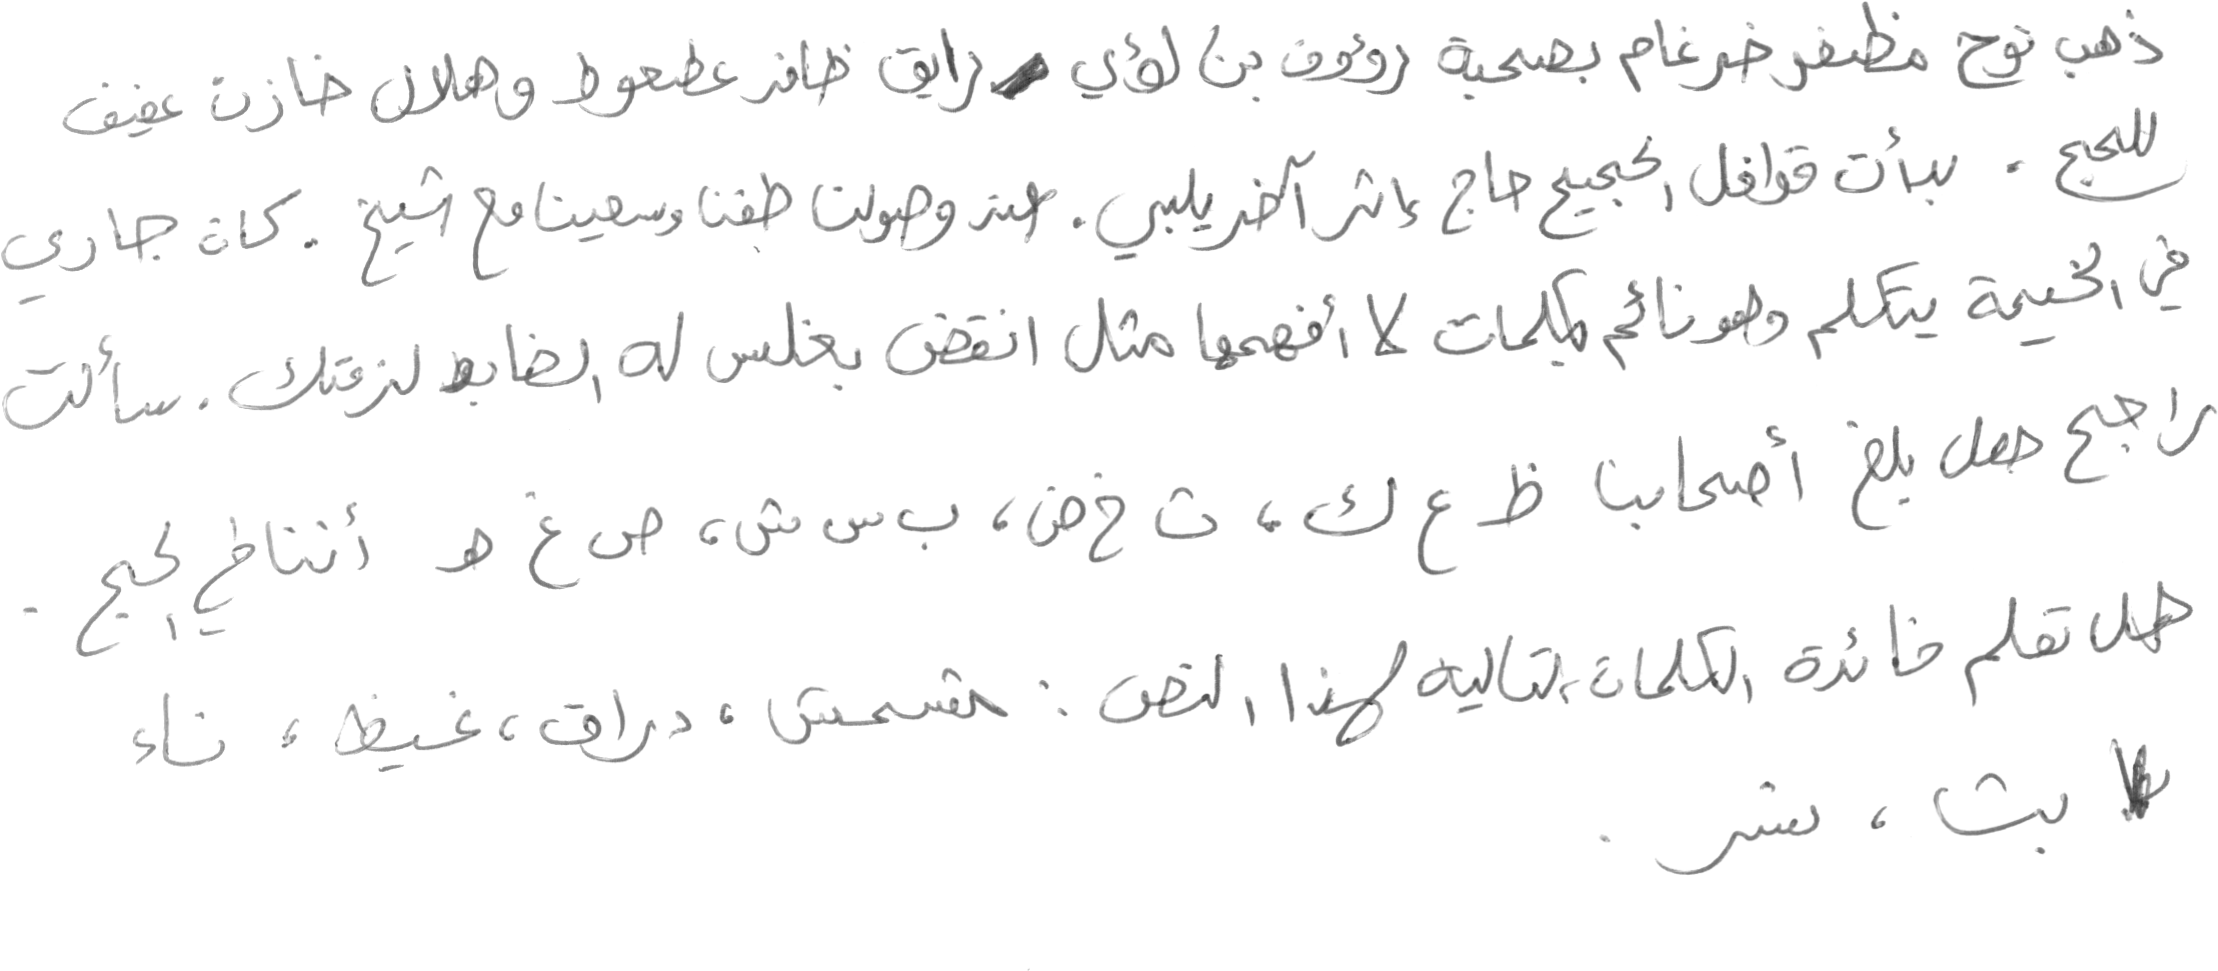 ذهب نوح مظفر ضرغام بصحبة رؤوف بن لؤي رايق ظافر عطعوط وهلال خازن عفيف
للحج . بدأت قوافل الحجيج حاج إثر آخر يلبي . عند وصولنا طفنا وسعينا مع الشيخ . كان جاري
في الخيمة يتكلم وهو نائم بكلمات لا أفهمها مثل انقض بغلس له الضابط لنزقتك . سألت
راجح هل بلغ أصحابنا ظ ع ك ، ث خ ض ، ب س ش ، ص غ هـ أننا في الحج .
هل تعلم فائدة الكلمات التالية لهذا النص : مشمش ، دراق ، غيظ ، ناء
بث ، نشر .